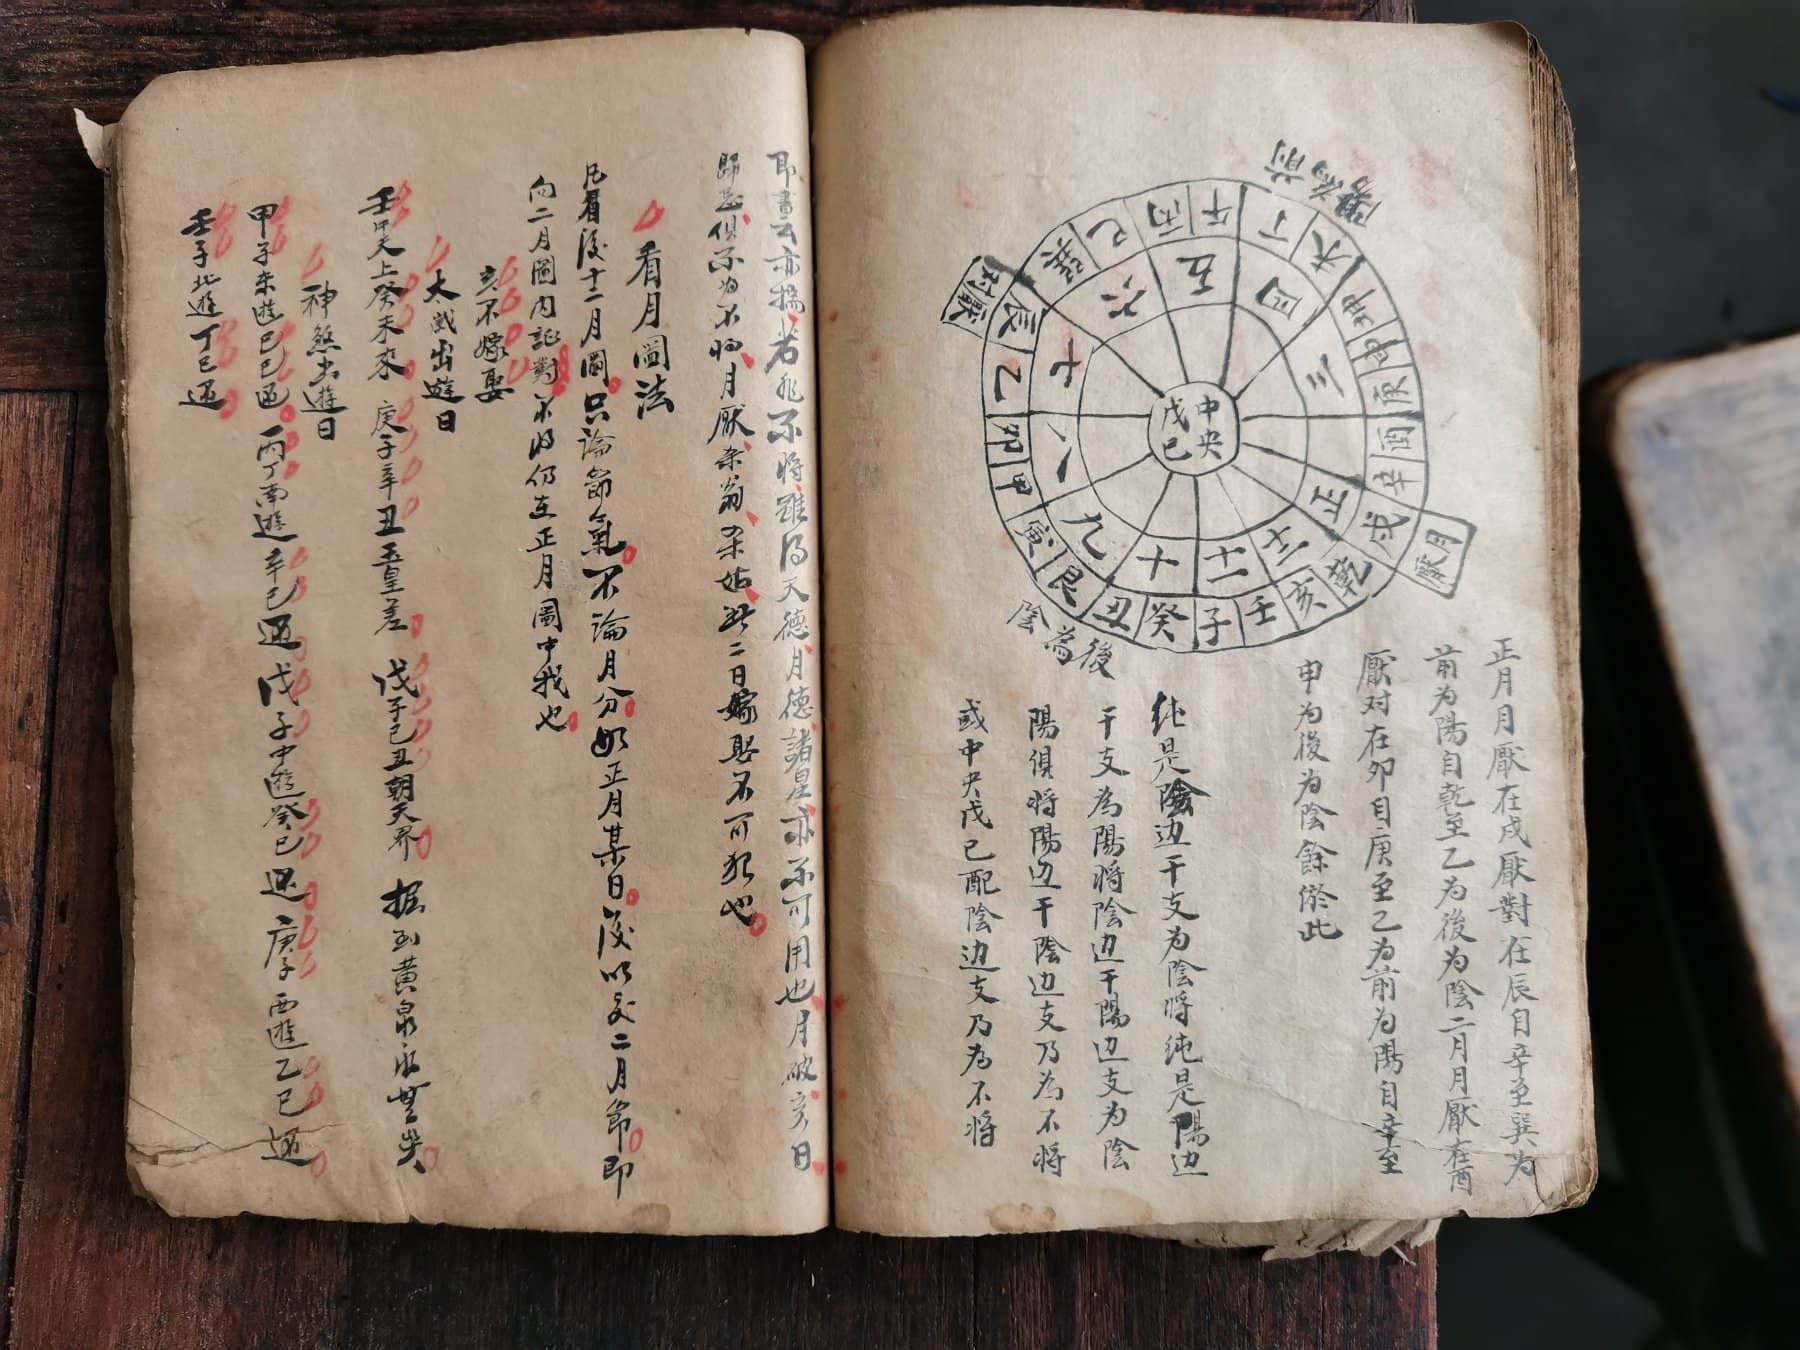 陽為前
午
丁
未
坤
申
庚
酉
辛
戌
乾
亥
壬
子
癸
丑
艮
寅
甲
卯
乙
辰
巽
巳
丙
五
四
三
正
十二
十一
十
九
八
七
六
中央
戊己
月厭
對厭
陰為後
正月月厭在戌厭對在辰自辛至巽为
前为陽自乾至乙为後为陰二月月厭在酉
厭对在卯自庚至乙为前为陽自辛至
申为後为陰餘倣此
純是陰边干支为陰将純是陽边
干支為陽將陰边干陽边支为陰
陽俱将陽边干陰边支乃為不将
或中央戊己配陰边支乃為不将
即書云亦揣若非不将雖得天德月德諸星亦不可用也月破亥日
即忌俱不为不将月厭杀翁杀姑此二日嫁娶不可犯也
看月圖法
凡看後十二月圖只論節氣不論月分如正月某日後以交二月節即
向二月圖内証對不将仍在正月圖中找也
亥不嫁娶
太歲出遊日
壬申天上癸未來 庚子辛丑玉皇差 戊子己丑朝天界 掘到黄泉永無失
神煞出遊日
甲子東遊己巳回 丙丁南遊辛巳迴 戊子中遊癸巳迴 庚子西遊乙巳迴
壬子北遊丁巳迴